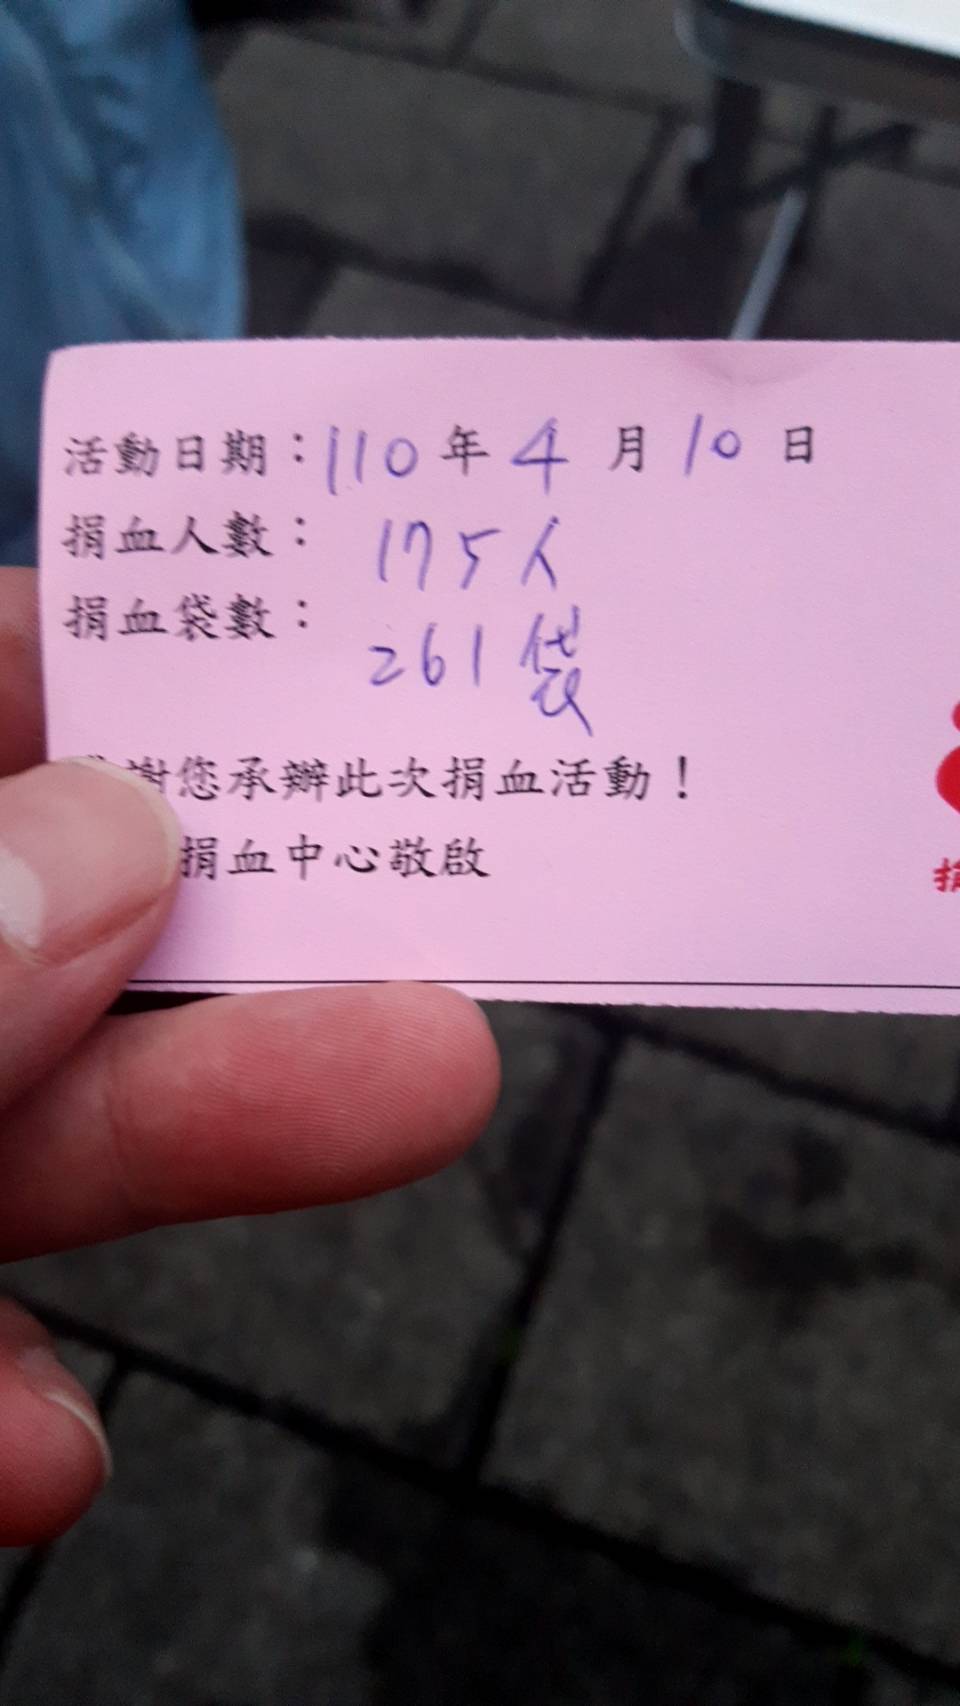 活動日期：110年4月10日
捐血人數：175人
捐血袋數：261袋
謝您承辦此次捐血活動！
捐血中心敬啟
捐